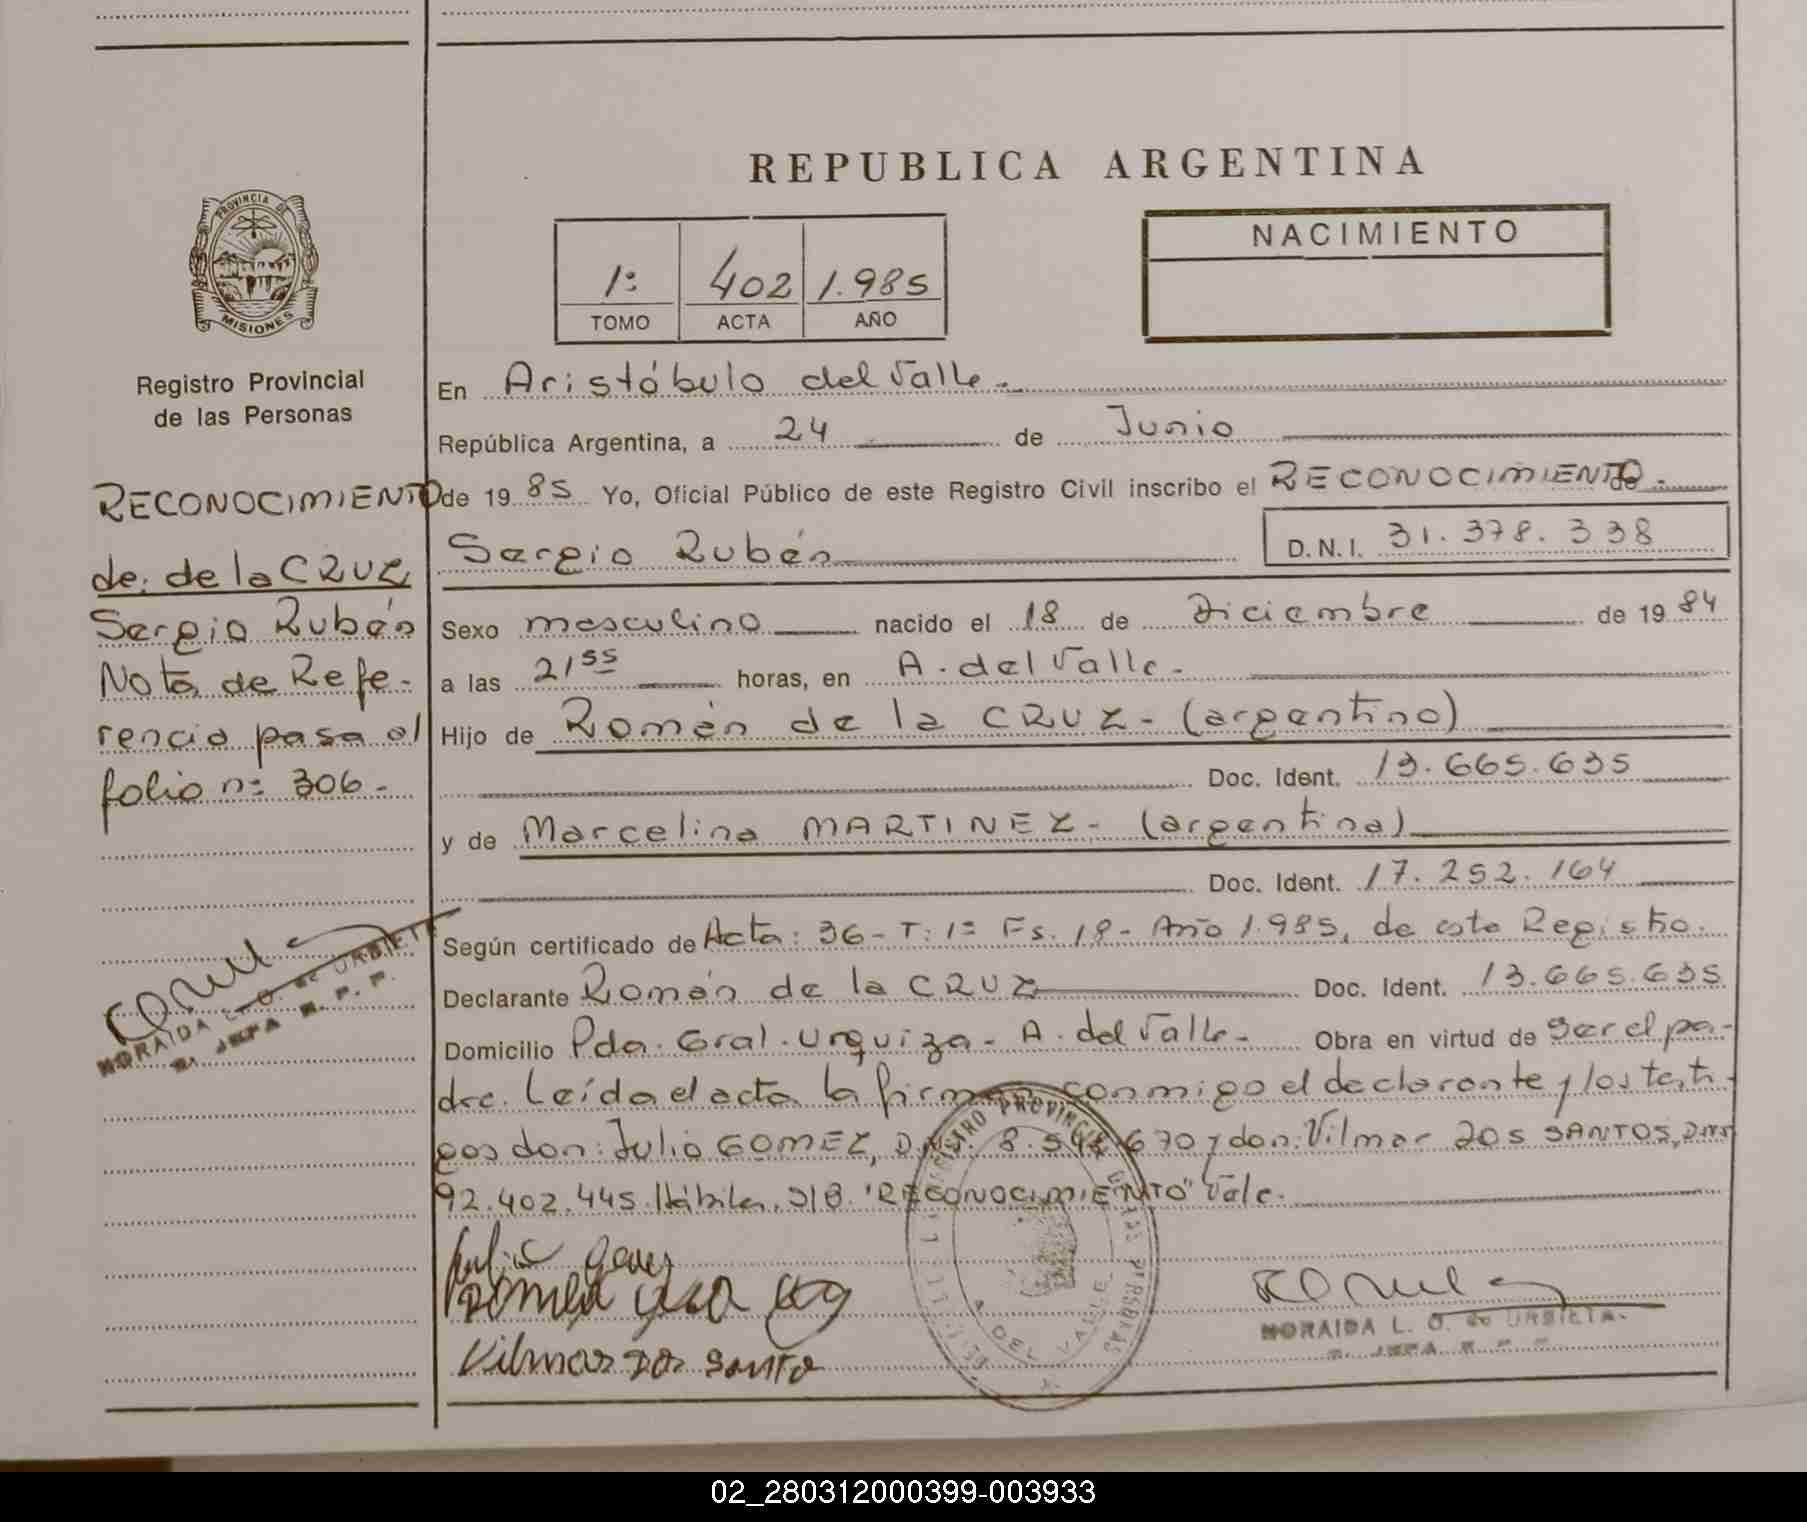 REPUBLICA ARGENTINA
PROVINCIA DE
MISIONES
1º 402 1.985
TOMO ACTA AÑO
NACIMIENTO
Registro Provincial
de las Personas
RECONOCIMIENTO
de: de la CRUZ
Sergio Rubén
Nota de Refe-
rencia pasa al
folio nº 306.-
NORAIDA L. O. de URBIETA
En Aristóbulo del Valle.-
República Argentina, a 24 de Junio
de 19 85 Yo, Oficial Público de este Registro Civil inscribo el RECONOCIMIENTO de -
Sergio Rubén D.N.I. 31.378.338
Sexo masculino nacido el 18 de Diciembre de 19 84
a las 21 55 horas, en A. del Valle.-
Hijo de Román de la CRUZ - (argentino)
Doc. Ident. 13.665.635
y de Marcelina MARTINEZ - (argentina)
Doc. Ident. 17.252.164
Según certificado de Acta: 36 - T: 1º Fs. 18 - Año 1.985, de este Registro.
Declarante Román de la CRUZ Doc. Ident. 13.665.635
Domicilio Pda. Gral. Urquiza - A. del Valle - Obra en virtud de ser el pa-
dre. Leída el acta la firman conmigo el declarante y los testi-
gos don: Julio GOMEZ, D.N.I. 8.542.670 y don: Vilmar DOS SANTOS, DNI
92.402.445. Hábiles. S/B. "RECONOCIMIENTO" Vale.-
Vilmar Dos Santo
A. DEL VALLE
NORAIDA L. O. de URBIETA
02_280312000399-003933